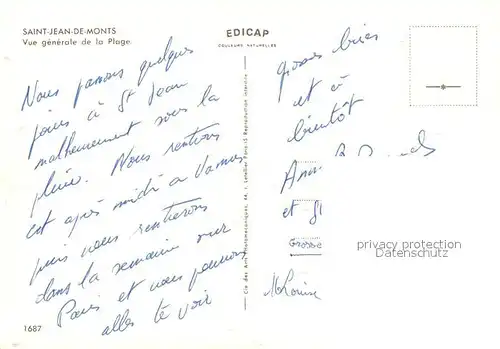 SAINT-JEAN-DE-MONTS
Vue générale de la Plage
EDICAP
COULEURS NATURELLES
Nous passons quelques
jours à St Jean
malheureusement sous la
pluie. Nous rentrons
cet après midi à Vannes
puis nous rentrerons
dans la semaine sur
Paris et nous pourrons
aller te voir
1687
Cie des Arts Photomécaniques, 44, r. Letellier Paris-15 Reproduction interdite
grosses bises
et à
bientôt
Ann
et
Grosse
M Louise
privacy protection
Datenschutz